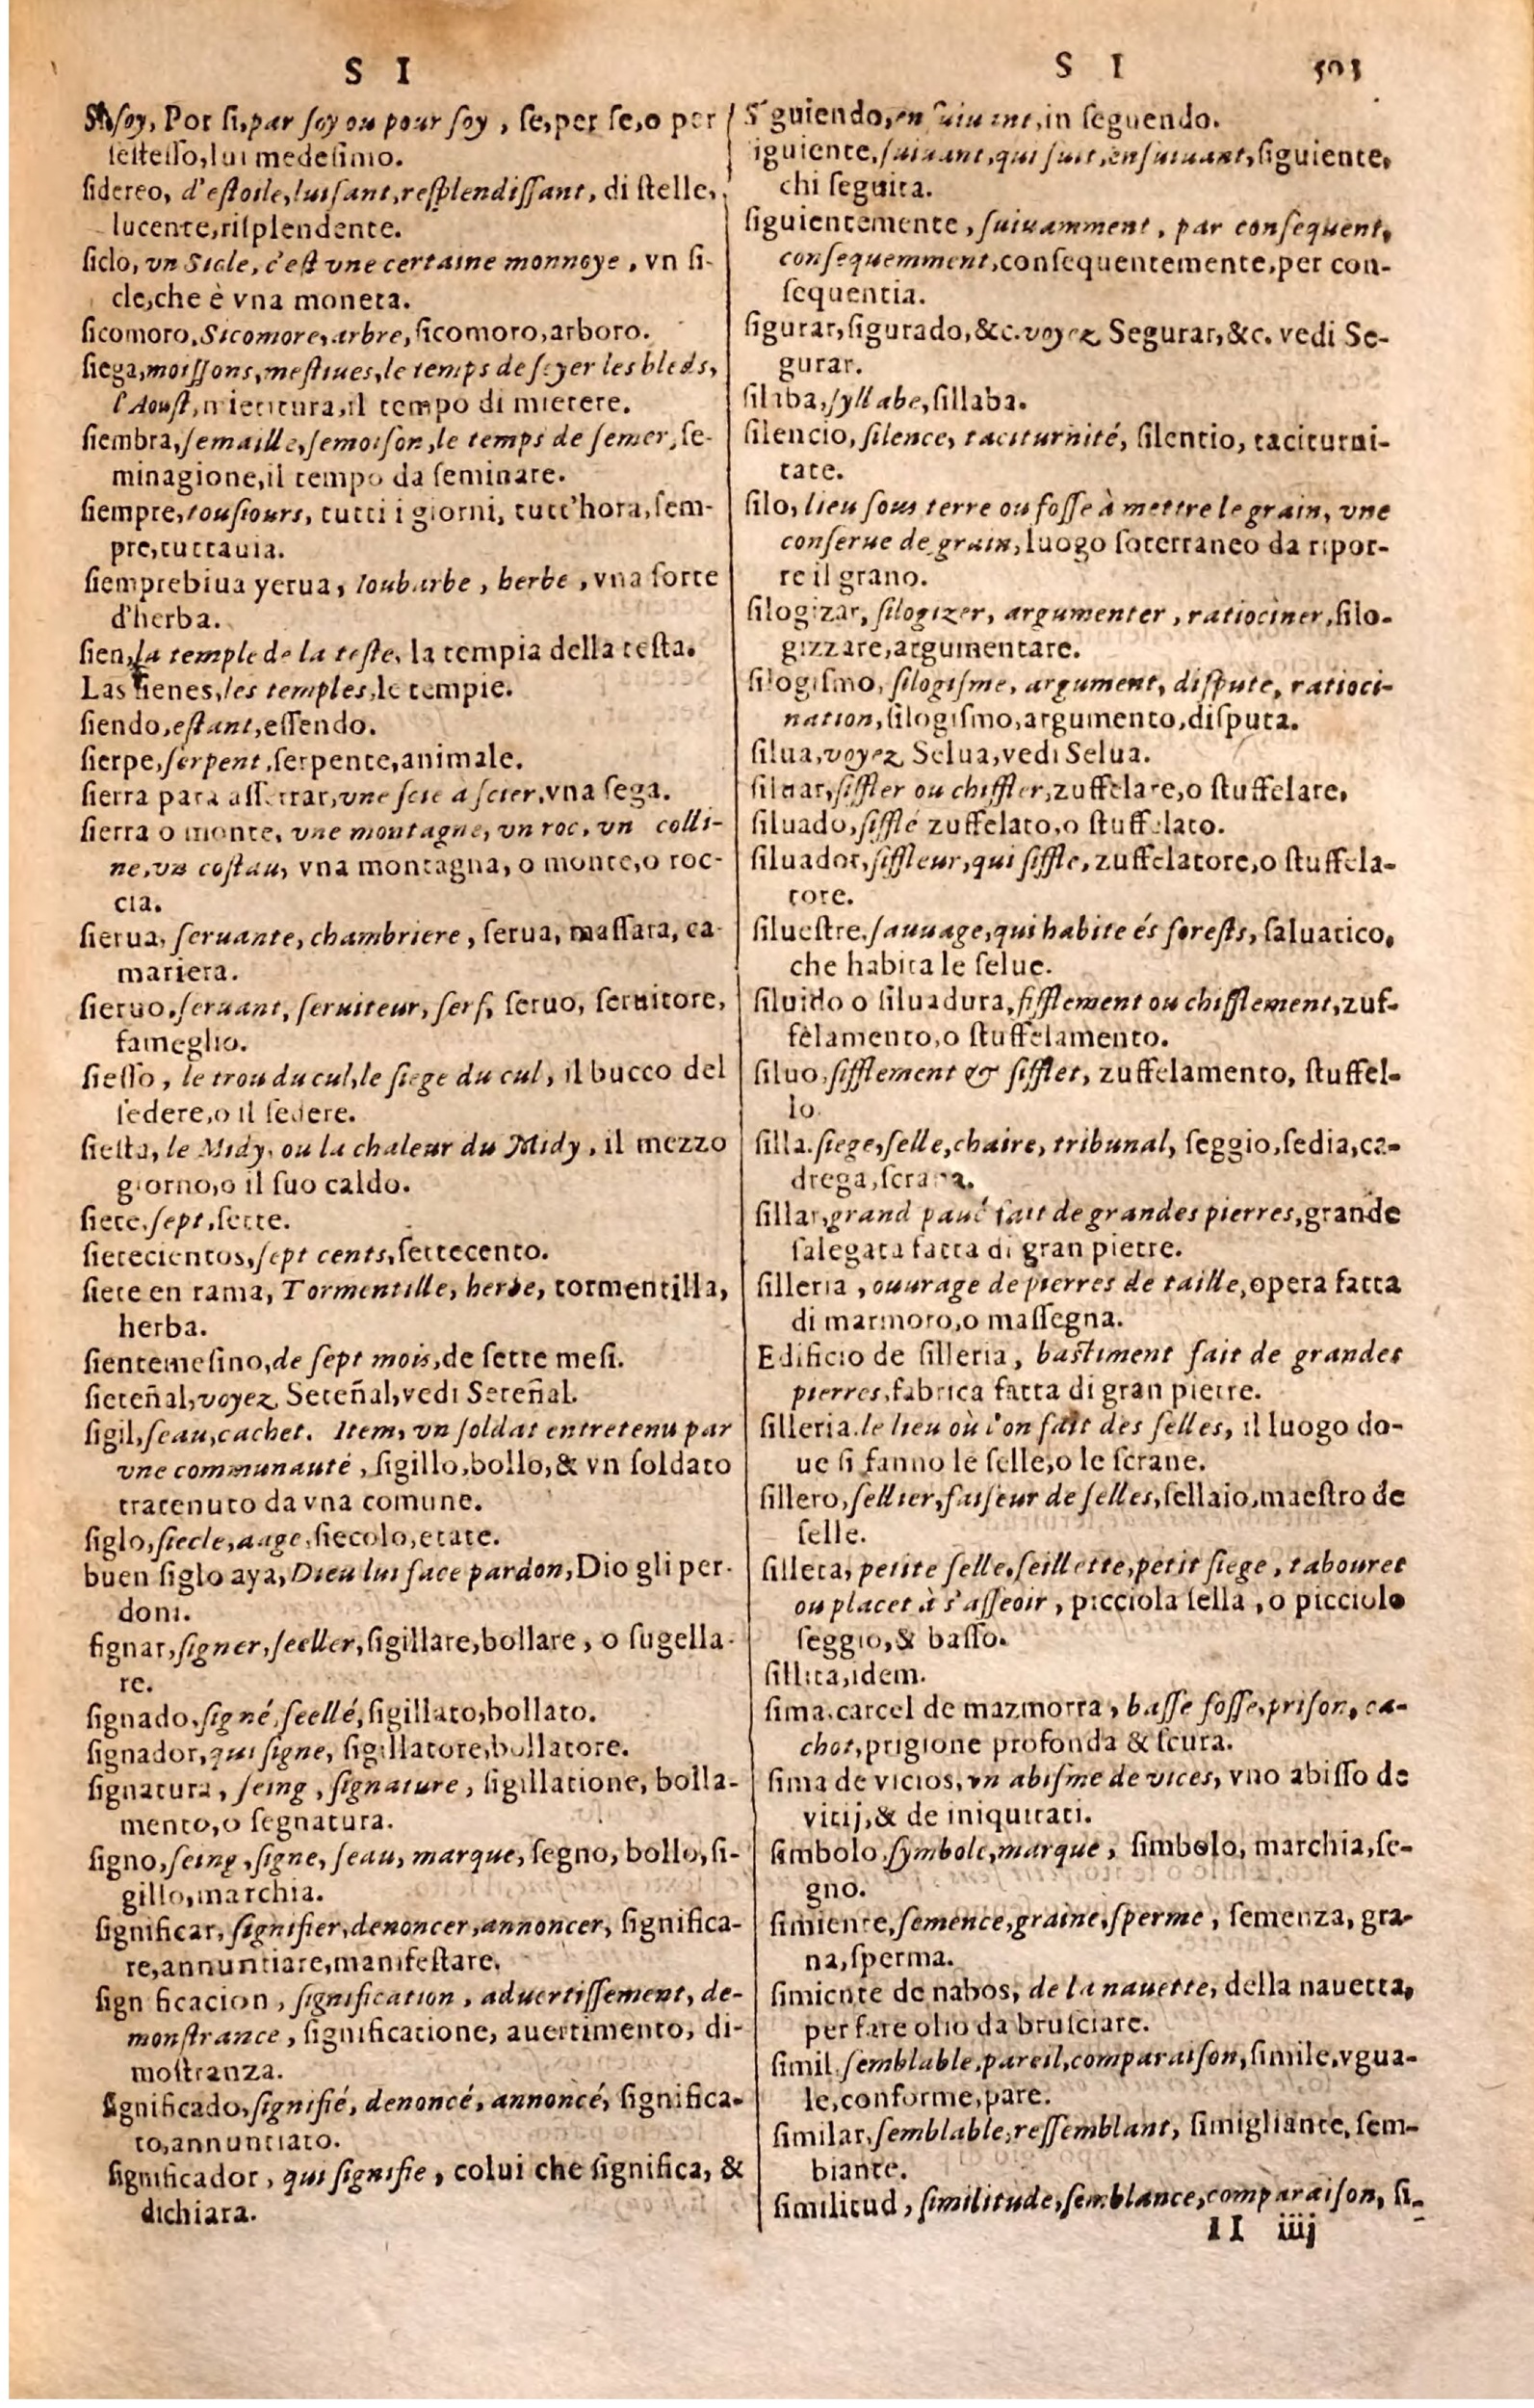 S I
Si, soy, Por si, par soy ou pour soy, se, per se, o per
sestesso, lui medesimo.
sidereo, d'estoile, luisant, resplendissant, di stelle,
lucente, risplendente.
siclo, vn Sicle, c'est vne certaine monnoye, vn si-
cle, che è vna moneta.
sicomoro, Sicomore, arbre, sicomoro, arboro.
siega, moissons, mestiues, le temps de seyer les bleds,
l'Aoust, mietitura, il tempo di mietere.
siembra, semaille, semoison, le temps de semer, se-
minagione, il tempo da seminare.
siempre, tousiours, tutti i giorni, tutt'hora, sem-
pre, tuttauia.
siemprebiua yerua, Ioubarbe, herbe, vna sorte
d'herba.
sien, la temple de la teste, la tempia della testa.
Las sienes, les temples, le tempie.
siendo, estant, essendo.
sierpe, serpent, serpente, animale.
sierra para asserrar, vne scie à scier, vna sega.
sierra o monte, vne montagne, vn roc, vn colli-
ne, vn costau, vna montagna, o monte, o roc-
cia.
sierua, seruante, chambriere, serua, massara, ca-
mariera.
sieruo, seruant, seruiteur, serf, seruo, seruitore,
fameglio.
siesso, le trou du cul, le siege du cul, il bucco del
sedere, o il sedere.
siesta, le Midy, ou la chaleur du Midy, il mezzo
giorno, o il suo caldo.
siete, sept, sette.
sietecientos, sept cents, settecento.
siete en rama, Tormentille, herbe, tormentilla,
herba.
sientemesino, de sept mois, de sette mesi.
sieteñal, voyez Seteñal, vedi Seteñal.
sigil, seau, cachet. Item, vn soldat entretenu par
vne communauté, sigillo, bollo, & vn soldato
tratenuto da vna comune.
siglo, siecle, aage, siecolo, etate.
buen siglo aya, Dieu lui face pardon, Dio gli per-
doni.
signar, signer, seeller, sigillare, bollare, o sugella-
re.
signado, signé, seellé, sigillato, bollato.
signador, qui signe, sigillatore, bollatore.
signatura, seing, signature, sigillatione, bolla-
mento, o segnatura.
signo, seing, signe, seau, marque, segno, bollo, si-
gillo, marchia.
significar, signifier, denoncer, annoncer, significa-
re, annuntiare, manifestare.
significacion, signification, aduertissement, de-
monstrance, significatione, auertimento, di-
mostranza.
significado, signifié, denoncé, annoncé, significa-
to, annuntiato.
significador, qui signifie, colui che significa, &
dichiara.
S I 503
Siguiendo, en suiuant, in seguendo.
siguiente, suiuant, qui suit, ensuiuant, siguiente,
chi seguita.
siguientemente, suiuamment, par consequent,
consequemment, consequentemente, per con-
sequentia.
sigurar, sigurado, &c. voyez Segurar, &c. vedi Se-
gurar.
silaba, syllabe, sillaba.
silencio, silence, taciturnité, silentio, taciturni-
tate.
silo, lieu sous terre ou fosse à mettre le grain, vne
conserue de grain, luogo soterraneo da ripor-
re il grano.
silogizar, silogizer, argumenter, ratiociner, silo-
gizzare, argumentare.
silogismo, silogisme, argument, dispute, ratioci-
nation, silogismo, argumento, disputa.
silua, voyez Selua, vedi Selua.
siluar, siffler ou chiffler, zuffelare, o stuffelare,
siluado, sifflé zuffelato, o stuffelato.
siluador, siffleur, qui siffle, zuffelatore, o stuffela-
tore.
siluestre, sauuage, qui habite és forests, saluatico,
che habita le selue.
siluido o siluadura, sifflement ou chifflement, zuf-
felamento, o stuffelamento.
siluo, sifflement & sifflet, zuffelamento, stuffel-
lo.
silla, siege, selle, chaire, tribunal, seggio, sedia, ca-
drega, scrana.
sillar, grand paué fait de grandes pierres, grande
salegata fatta di gran pietre.
silleria, ouurage de pierres de taille, opera fatta
di marmoro, o massegna.
Edificio de silleria, bastiment fait de grandes
pierres, fabrica fatta di gran pietre.
silleria, le lieu où l'on fait des selles, il luogo do-
ue si fanno le selle, o le scrane.
sillero, sellier, faiseur de selles, sellaio, maestro de
selle.
silleta, petite selle, seillette, petit siege, tabouret
ou placet à s'asseoir, picciola sella, o picciolo
seggio, & basso.
sillita, idem.
sima, carcel de mazmorra, basse fosse, prison, ca-
chot, prigione profonda & scura.
sima de vicios, vn abisme de vices, vno abisso de
vitij, & de iniquitati.
simbolo, symbole, marque, simbolo, marchia, se-
gno.
simiente, semence, graine, sperme, semenza, gra-
na, sperma.
simiente de nabos, de la nauette, della nauetta,
per fare olio da brusciare.
simil, semblable, pareil, comparaison, simile, vgua-
le, conforme, pare.
similar, semblable, ressemblant, simigliante, sem-
biante.
similitud, similitude, semblance, comparaison, si-
II iiij